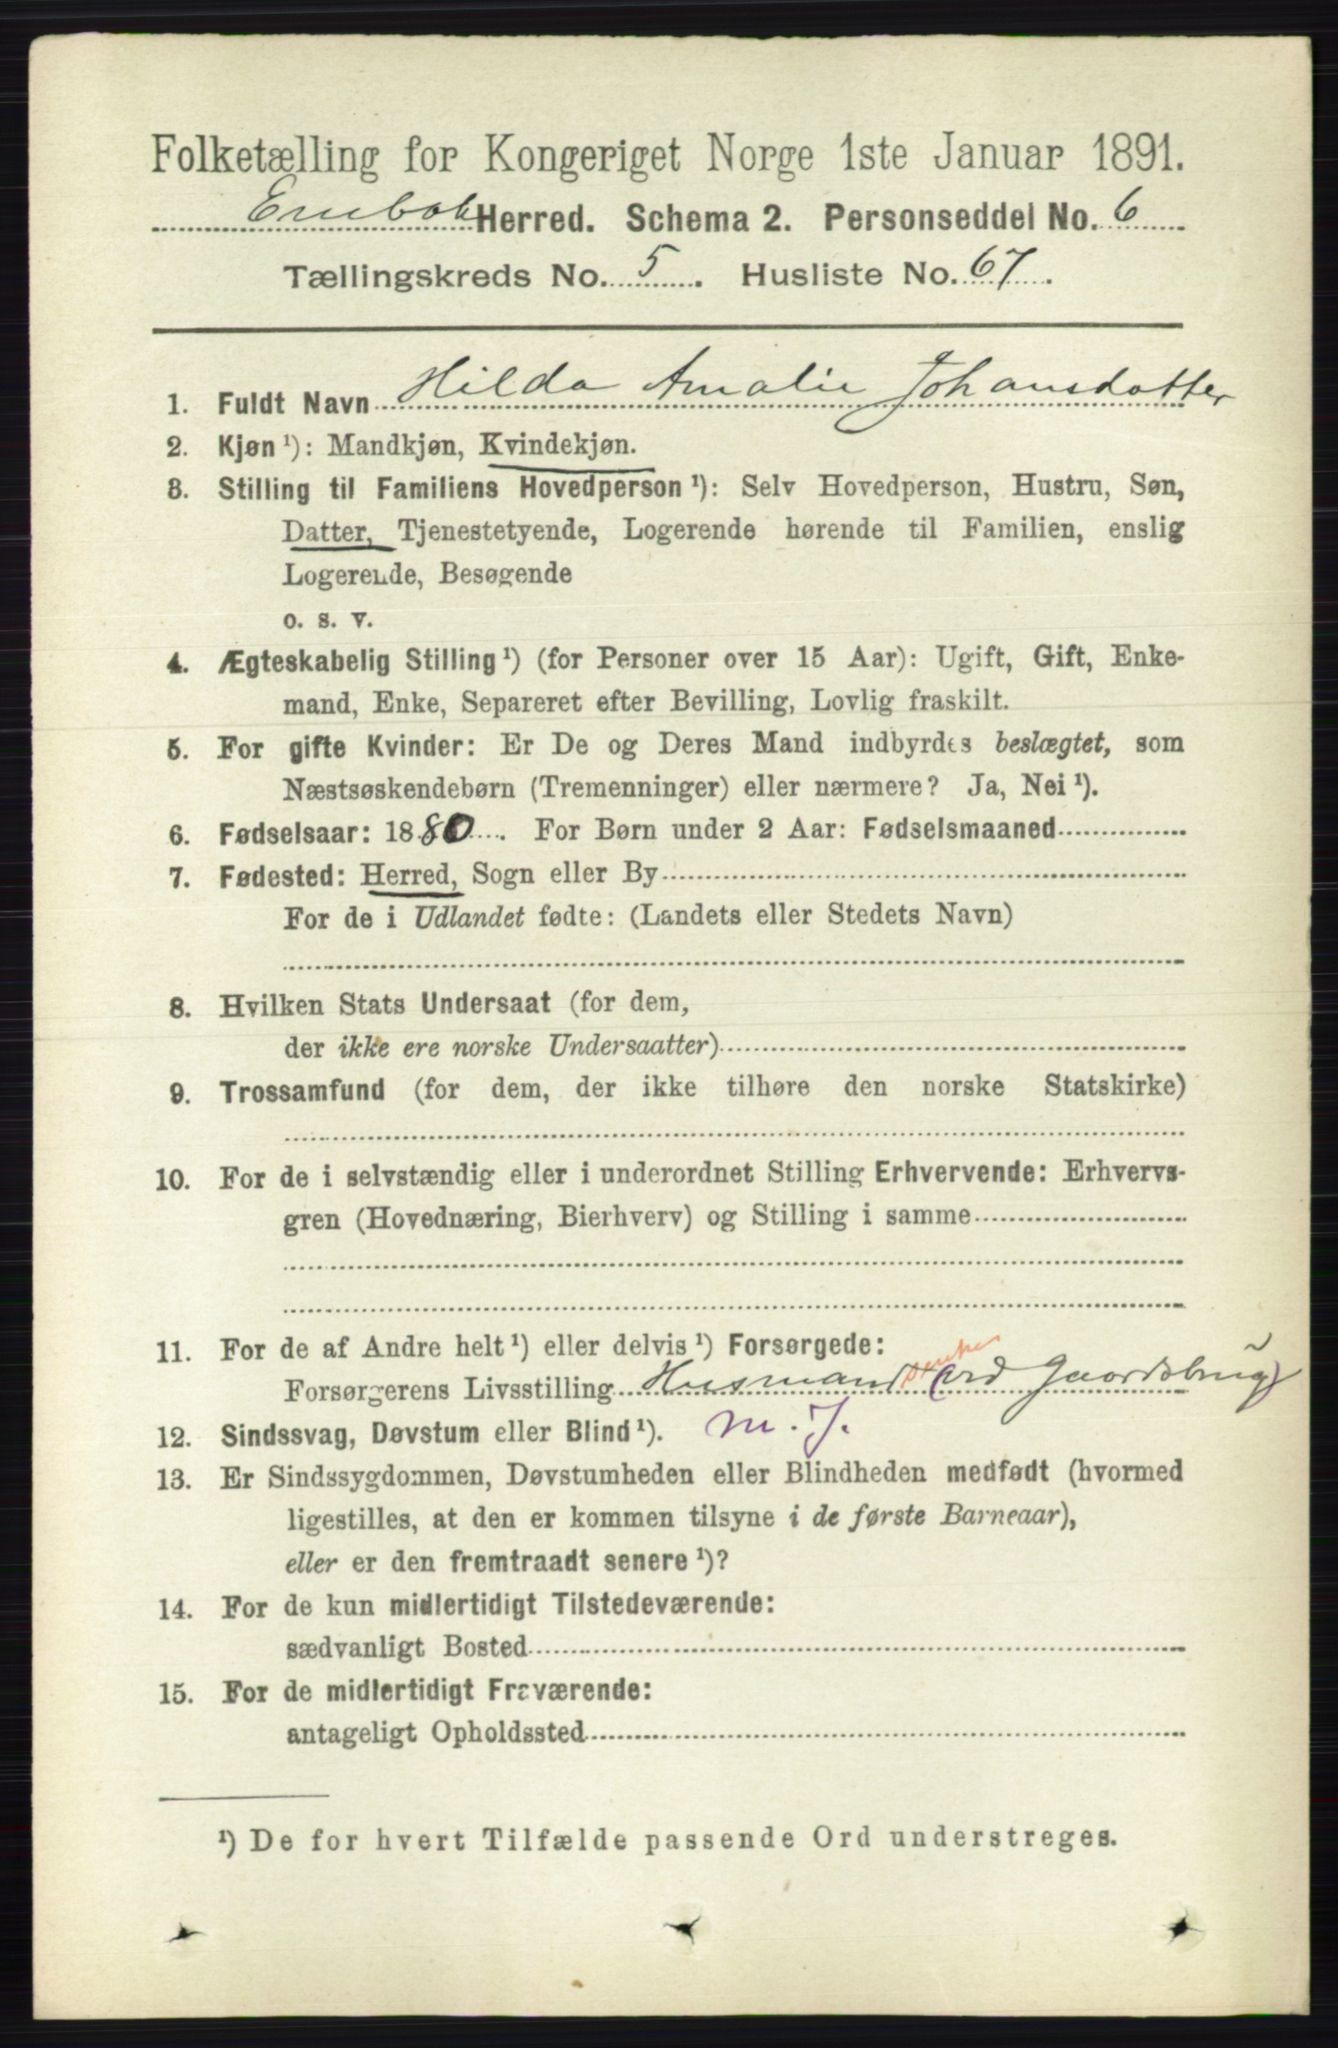 Folketælling for Kongeriget Norge 1ste Januar 1891.
Enebak Herred. Schema 2. Personseddel No. 6
Tællingskreds No. 5. Husliste No. 67.
1. Fuldt Navn Hilda Amalie Johansdatter
2. Kjøn ¹): Mandkjøn, Kvindekjøn.
3. Stilling til Familiens Hovedperson ¹): Selv Hovedperson, Hustru, Søn,
Datter, Tjenestetyende, Logerende hørende til Familien, enslig
Logerende, Besøgende
o. s. v.
4. Ægteskabelig Stilling ¹) (for Personer over 15 Aar): Ugift, Gift, Enke-
mand, Enke, Separeret efter Bevilling, Lovlig fraskilt.
5. For gifte Kvinder: Er De og Deres Mand indbyrdes beslægtet, som
Næstsøskendebørn (Tremenninger) eller nærmere? Ja, Nei ¹).
6. Fødselsaar: 1880. For Børn under 2 Aar: Fødselsmaaned
7. Fødested: Herred, Sogn eller By
For de i Udlandet fødte: (Landets eller Stedets Navn)
8. Hvilken Stats Undersaat (for dem,
der ikke ere norske Undersaatter)
9. Trossamfund (for dem, der ikke tilhøre den norske Statskirke)
10. For de i selvstændig eller i underordnet Stilling Erhvervende: Erhvervs-
gren (Hovednæring, Bierhverv) og Stilling i samme
11. For de af Andre helt ¹) eller delvis ¹) Forsørgede:
Forsørgerens Livsstilling Husmand (ved Gaardsbrug)
12. Sindssvag, Døvstum eller Blind ¹). m. J.
13. Er Sindssygdommen, Døvstumheden eller Blindheden medfødt (hvormed
ligestilles, at den er kommen tilsyne i de første Barneaar),
eller er den fremtraadt senere ¹)?
14. For de kun midlertidigt Tilstedeværende:
sædvanligt Bosted
15. For de midlertidigt Fraværende:
antageligt Opholdssted
¹) De for hvert Tilfælde passende Ord understreges.